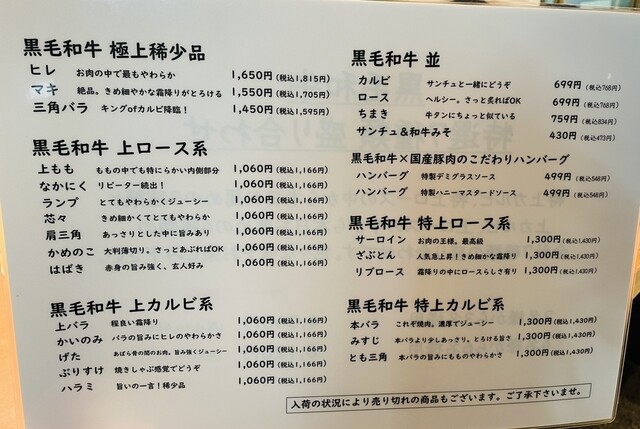 黒毛和牛 極上稀少品
ヒレ お肉の中で最もやわらか 1,650円(税込1,815円)
マキ 絶品。きめ細やかな霜降りがとろける 1,550円(税込1,705円)
三角バラ キングofカルビ降臨! 1,450円(税込1,595円)
黒毛和牛 上ロース系
上もも ももの中でも特にらかい内側部分 1,060円(税込1,166円)
なかにく リピーター続出! 1,060円(税込1,166円)
ランプ とてもやわらかくジューシー 1,060円(税込1,166円)
芯々 きめ細かくてとてもやわらか 1,060円(税込1,166円)
肩三角 あっさりとした中に旨みあり 1,060円(税込1,166円)
かめのこ 大判薄切り。さっとあぶればOK 1,060円(税込1,166円)
はばき 赤身の旨み強く、玄人好み 1,060円(税込1,166円)
黒毛和牛 上カルビ系
上バラ 程良い霜降り 1,060円(税込1,166円)
かいのみ バラの旨みにヒレのやわらかさ 1,060円(税込1,166円)
げた あばら骨の間のお肉。旨み強くジューシー 1,060円(税込1,166円)
ぶりすけ 焼きしゃぶ感覚でどうぞ 1,060円(税込1,166円)
ハラミ 旨いの一言!稀少品 1,060円(税込1,166円)
黒毛和牛 並
カルビ サンチュと一緒にどうぞ 699円(税込768円)
ロース ヘルシー。さっと炙ればOK 699円(税込768円)
ちまき 牛タンにちょっと似ている 759円(税込834円)
サンチュ&和牛みそ 430円(税込473円)
黒毛和牛×国産豚肉のこだわりハンバーグ
ハンバーグ 特製デミグラスソース 499円(税込548円)
ハンバーグ 特製ハニーマスタードソース 499円(税込548円)
黒毛和牛 特上ロース系
サーロイン お肉の王様。最高級 1,300円(税込1,430円)
ざぶとん 人気急上昇!きめ細かな霜降り 1,300円(税込1,430円)
リブロース 霜降りの中にロースらしさ有り 1,300円(税込1,430円)
黒毛和牛 特上カルビ系
本バラ これぞ焼肉。濃厚でジューシー 1,300円(税込1,430円)
みすじ 本バラより少しあっさり。とろける旨さ 1,300円(税込1,430円)
とも三角 本バラの旨みにもものやわらかさ 1,300円(税込1,430円)
入荷の状況により売り切れの商品もございます。ご了承下さいませ。